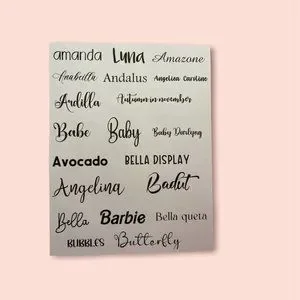 amanda Luna Amazone
Anabella Andalus Angelica Caroline
Ardilla Autumn in november
Babe Baby Baby Darlyng
Avocado BELLA DISPLAY
Angelina Badut
Bella Barbie Bella queta
BUBBLES Butterfly